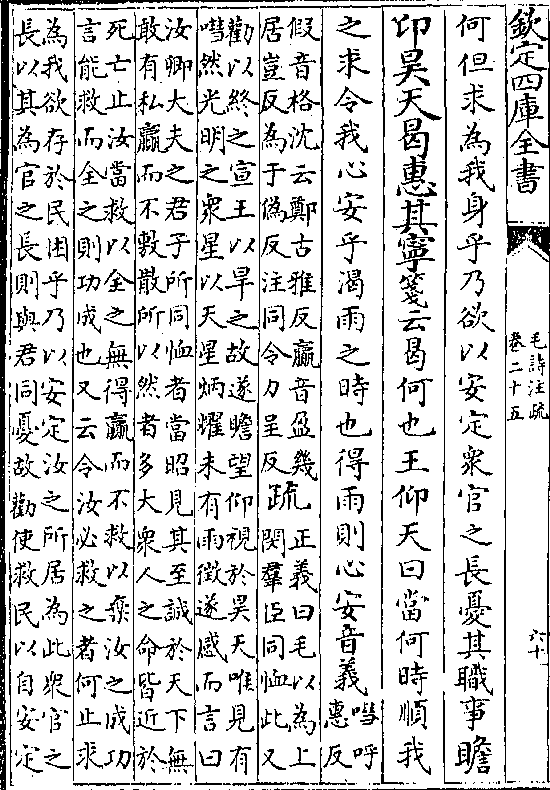 欽定四庫全書
毛詩注疏
卷二十五
六十
何但求為我身乎乃欲以安定衆官之長憂其職事瞻
卬昊天曷惠其寧箋云曷何也王仰天曰當何時順我
之求令我心安乎渴雨之時也得雨則心安音義
嘒呼
惠反
假音格沈云鄭古雅反贏音盈幾
居豈反為于偽反注同令力呈反
疏
正義曰毛以為上
閔羣臣同恤此又
勸以終之宣王以旱之故遂瞻望仰視於昊天唯見有
嘒然光明之衆星以天星炳耀未有雨徵遂感而言曰
汝卿大夫之君子所同恤者當昭見其至誠於天下無
敢有私贏而不敷散所以然者多大衆人之命皆近於
死亡止汝當救以全之無得贏而不救以棄汝之成功
言能救而全之則功成也又云令汝必救之者何止求
為我欲存於民困乎乃以安定汝之所居為此衆官之
長以其為官之長則與君同憂故勸使救民以自安定